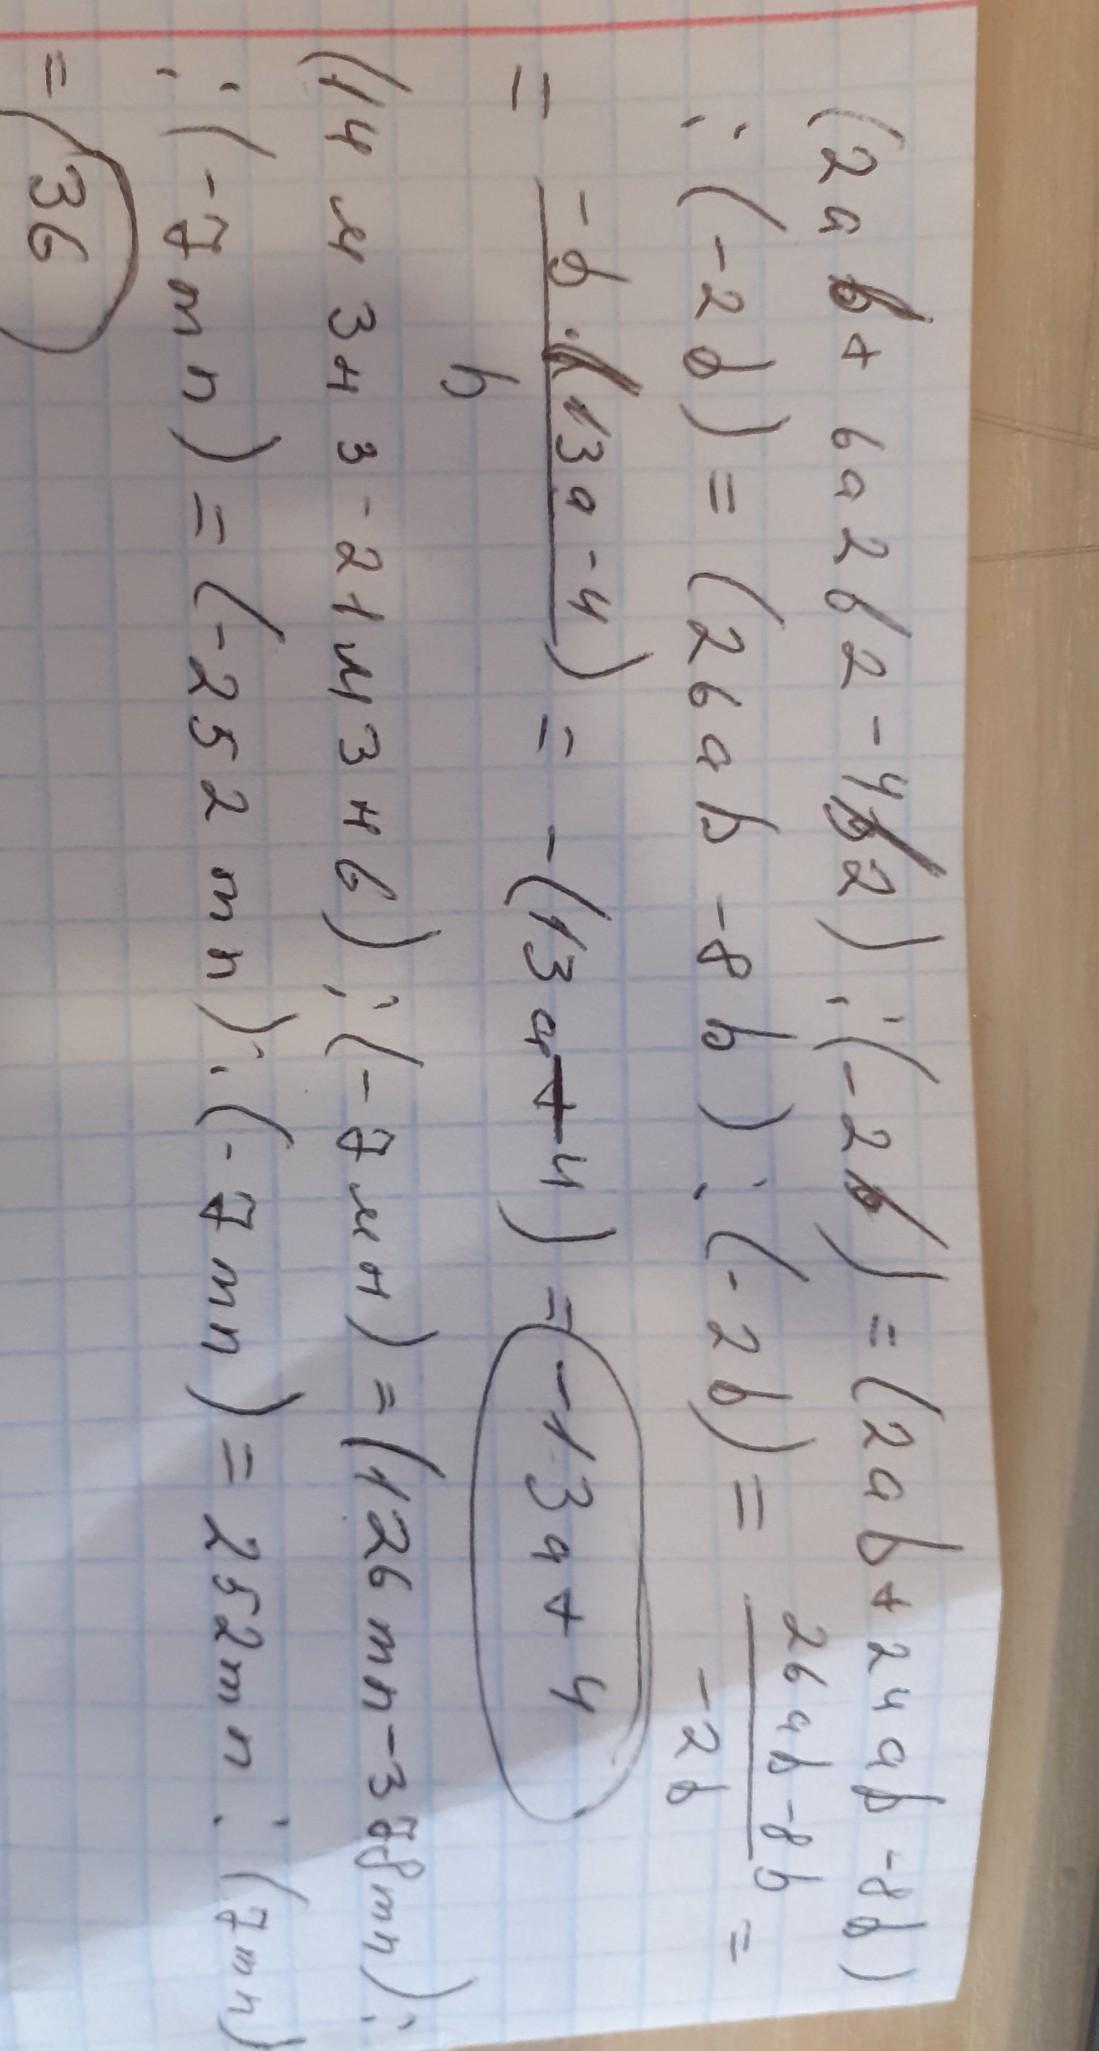 (2ab+6a2b2-4b2):(-2b)=(2ab+24ab-8b)
:(-2b)=(26ab-8b):(-2b)= 26ab-8b / -2b =
= -b·(13a-4) / b = -(13a-4)= -13a+4
(14м3н3-21м3н6):(-7мн)=(126mn-378mn):
:(-7mn)=(-252mn):(-7mn)=252mn:(7mn)
= 36